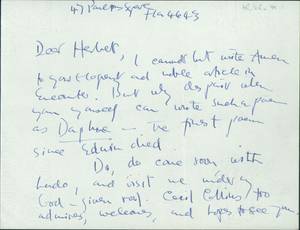 47 Paultons Square
Fla 4645
Dear Herbert,
I cannot but write Amen
to your eloquent and noble article in
Encounter. But why despair when
you yourself can write such a poem
as Daphne — the finest poem
since Edwin died
Do, do come soon with
Ludo, and visit me under my
God-given roof. Cecil Collins too
admires, welcomes, and hopes to see you